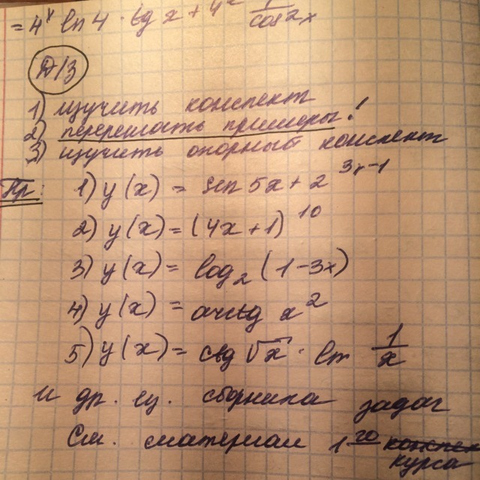 = 4ˣ ln 4 · tg x + 4ˣ 1/cos²x
Д/З
1) изучить конспект
2) перерешать примеры!
3) изучить опорный конспект
Пр: 1) y(x) = sin 5x + 2^(3x-1)
2) y(x) = (4x+1)^10
3) y(x) = log₂(1-3x)
4) y(x) = arctg x²
5) y(x) = ctg √x · ln 1/x
и др. из сборника задач
См. материал 1^го
курса